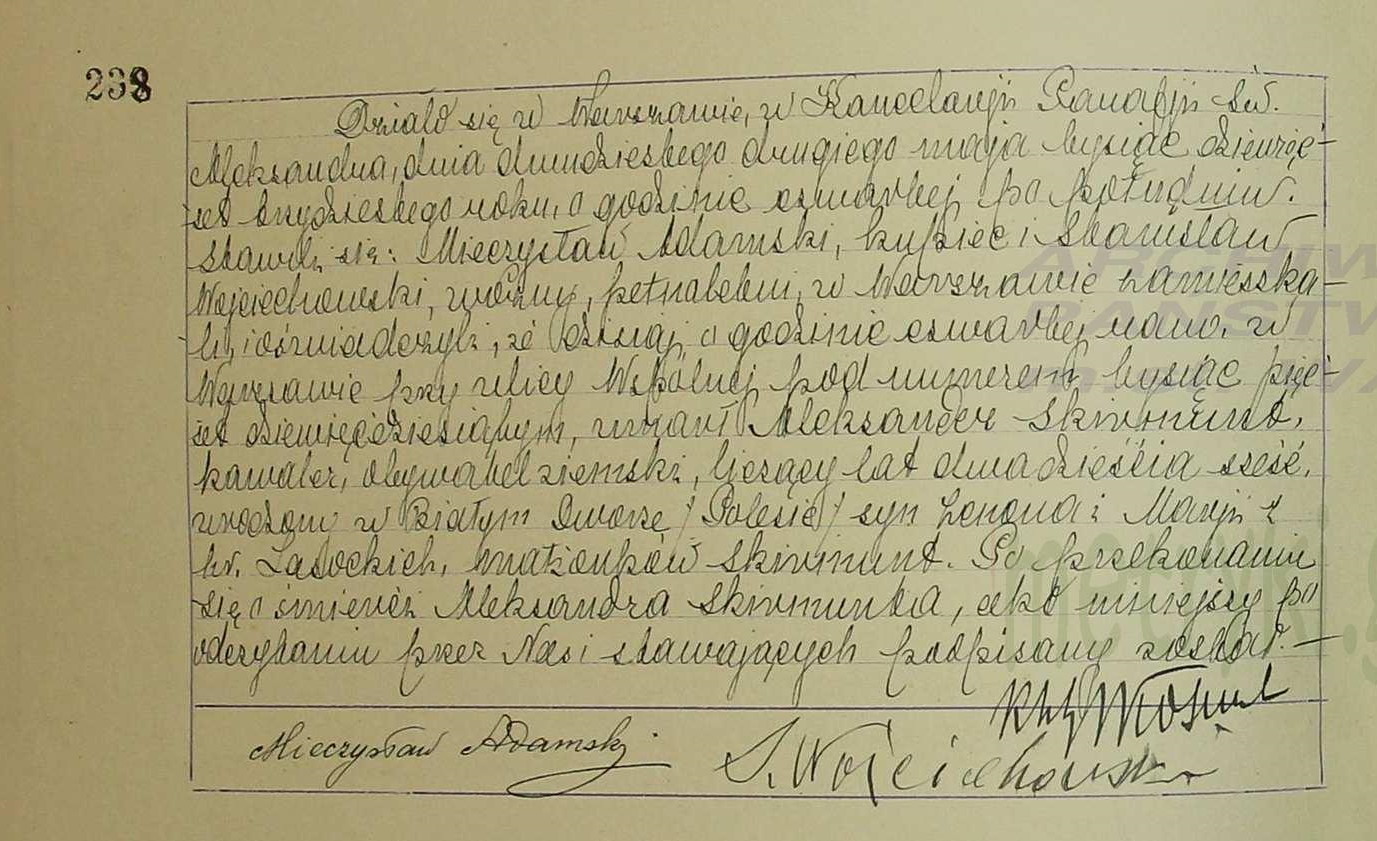 238
Działo się w Warszawie, w Kancelaryi Parafji Św.
Aleksandra, dnia dwudziestego drugiego maja tysiąc dziewięć-
set trzydziestego roku, o godzinie czwartej po południu.
Stawili się: Mieczysław Adamski, kupiec i Stanisław
Wojciechowski, woźny, pełnoletni, w Warszawie zamieszka-
li, i oświadczyli, że dzisiaj, o godzinie czwartej rano, w
Warszawie przy ulicy Wspólnej pod numerem tysiąc pięć-
set dziewięćdziesiątym, umarł Aleksander Skirmunt,
kawaler, obywatel ziemski, liczący lat dwadzieścia sześć,
urodzony w Białym Dworze / Polesie / syn Zenona i Maryi z
hr. Lasockich, małżonków Skirmunt. Po przekonaniu
się o śmierci Aleksandra Skirmunta, akt niniejszy po
odczytaniu przez Nas i stawających podpisany został. —
Mieczysław Adamski
S. Wojciechowski
ARCHIW
PAŃSTW
WA